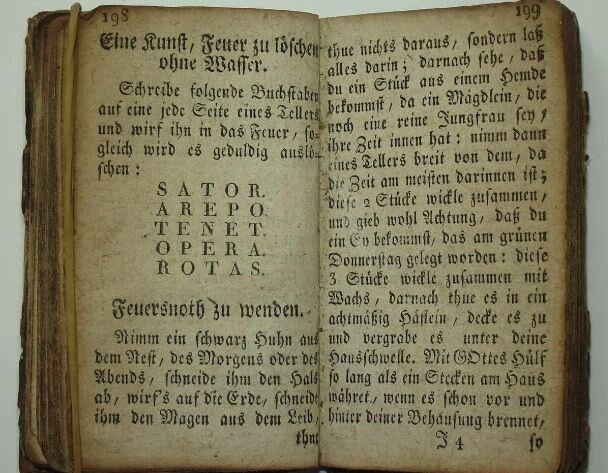 198
Eine Kunst, Feuer zu löschen
ohne Wasser.
Schreibe folgende Buchstaben
auf eine jede Seite eines Tellers
und wirf ihn in das Feuer, so=
gleich wird es geduldig auslö=
schen:
S A T O R.
A R E P O
T E N E T.
O P E R A.
R O T A S.
Feuersnoth zu wenden.
Nimm ein schwarz Huhn aus
dem Nest, des Morgens oder des
Abends, schneide ihm den Hals
ab, wirf's auf die Erde, schneide
ihm den Magen aus dem Leib,
thue
199
thue nichts daraus, sondern laß
alles darin; darnach sehe, daß
du ein Stück aus einem Hemde
bekommst, da ein Mägdlein, die
noch eine reine Jungfrau sey,
ihre Zeit innen hat: nimm dann
eines Tellers breit von dem, da
die Zeit am meisten darinnen ist;
diese 2 Stücke wickle zusammen,
und gieb wohl Achtung, daß du
ein Ey bekommst, das am grünen
Donnerstag gelegt worden: diese
3 Stücke wickle zusammen mit
Wachs, darnach thue es in ein
achtmäßig Häflein, decke es zu
und vergrabe es unter deine
Hausschwelle. Mit GOttes Hülf
so lang als ein Stecken am Haus
währet, wenn es schon vor und
hinter deiner Behausung brennet,
J 4
so